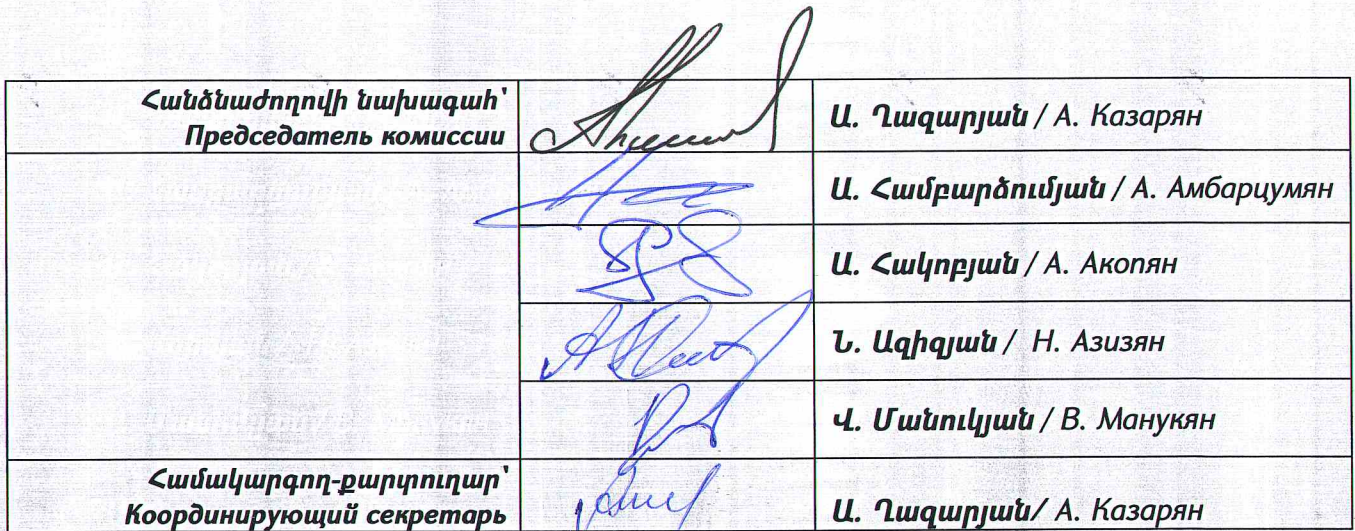 Հանձնաժողովի նախագահ՝
Председатель комиссии
Ա. Ղազարյան / А. Казарян
Ա. Համբարձումյան / А. Амбарцумян
Ա. Հակոբյան / А. Акопян
Ն. Ազիզյան / Н. Азизян
Վ. Մանուկյան / В. Манукян
Համակարգող-քարտուղար՝
Координирующий секретарь
Ա. Ղազարյան/ А. Казарян